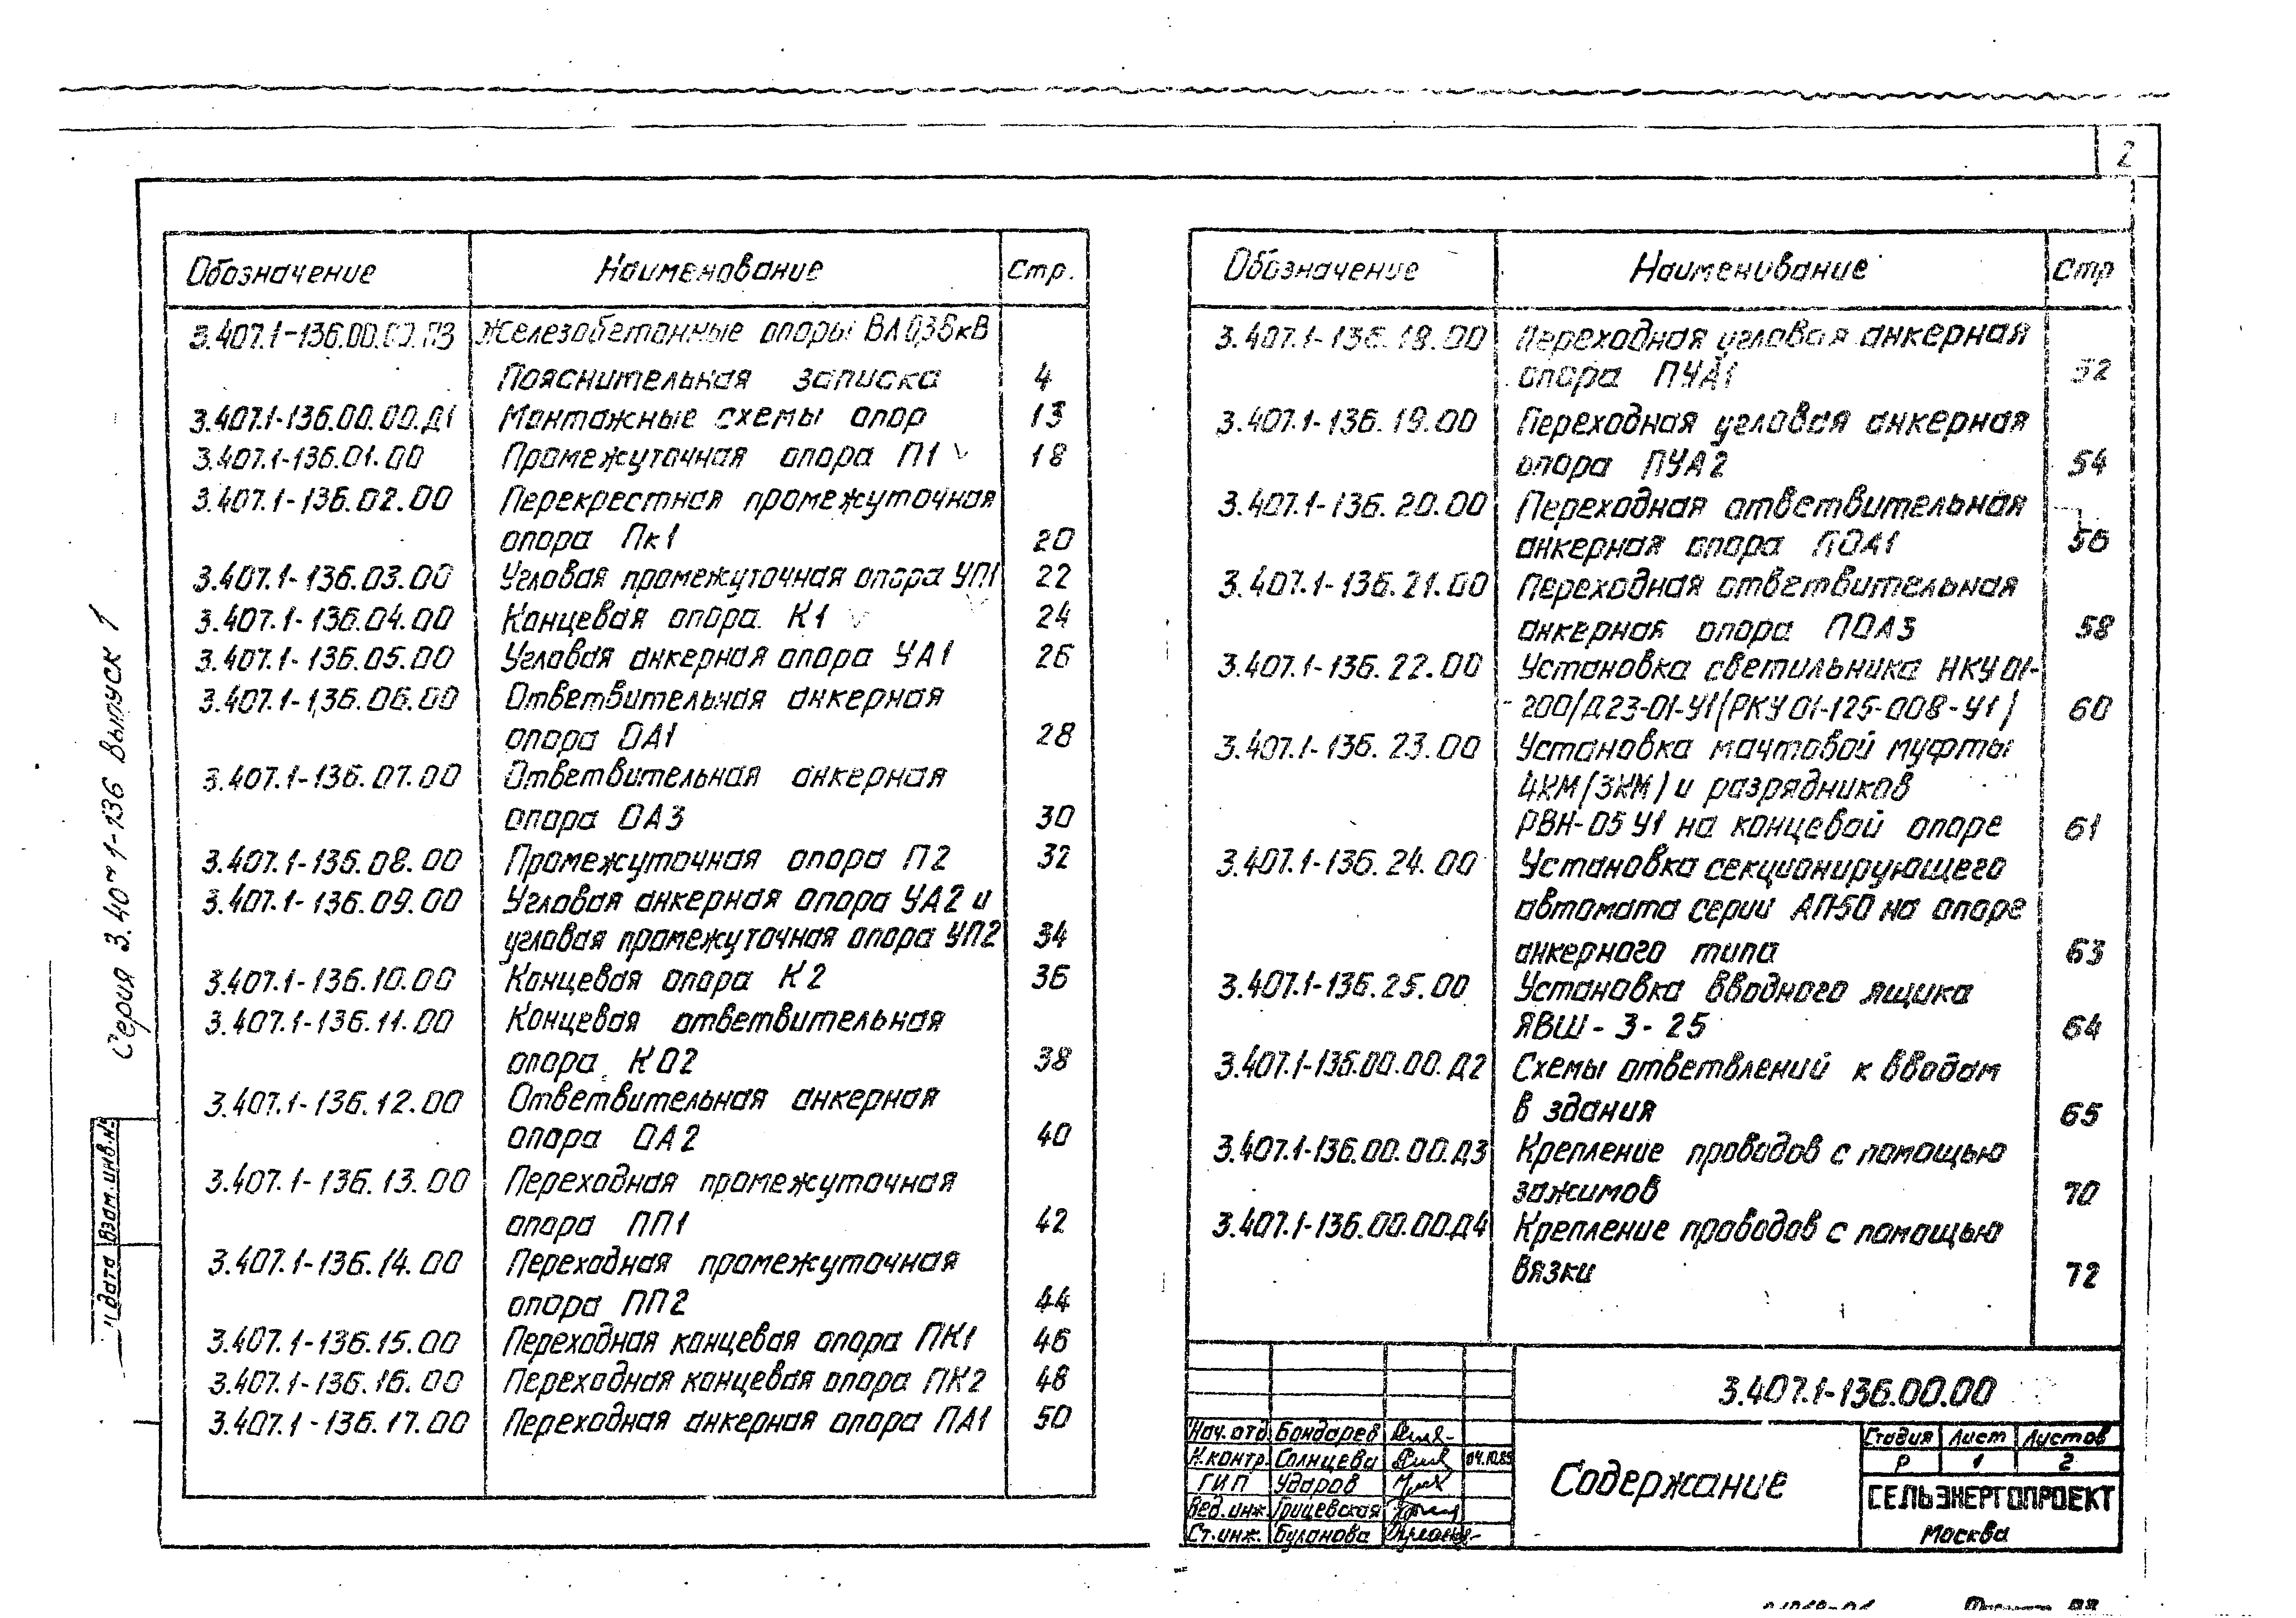 2
Обозначение Наименование Стр.
3.407.1-136.00.00.ПЗ Железобетонные опоры ВЛ 0,38кВ
Пояснительная записка 4
3.407.1-136.00.00.Д1 Монтажные схемы опор 13
3.407.1-136.01.00 Промежуточная опора П1 18
3.407.1-136.02.00 Перекрестная промежуточная
опора Пк1 20
3.407.1-136.03.00 Угловая промежуточная опора УП1 22
3.407.1-136.04.00 Концевая опора К1 24
3.407.1-136.05.00 Угловая анкерная опора УА1 26
3.407.1-136.06.00 Ответвительная анкерная
опора ОА1 28
3.407.1-136.07.00 Ответвительная анкерная
опора ОА3 30
3.407.1-136.08.00 Промежуточная опора П2 32
3.407.1-136.09.00 Угловая анкерная опора УА2 и
угловая промежуточная опора УП2 34
3.407.1-136.10.00 Концевая опора К2 36
3.407.1-136.11.00 Концевая ответвительная
опора КО2 38
3.407.1-136.12.00 Ответвительная анкерная
опора ОА2 40
3.407.1-136.13.00 Переходная промежуточная
опора ПП1 42
3.407.1-136.14.00 Переходная промежуточная
опора ПП2 44
3.407.1-136.15.00 Переходная концевая опора ПК1 46
3.407.1-136.16.00 Переходная концевая опора ПК2 48
3.407.1-136.17.00 Переходная анкерная опора ПА1 50
Обозначение Наименование Стр
3.407.1-136.18.00 Переходная угловая анкерная
опора ПУА1 52
3.407.1-136.19.00 Переходная угловая анкерная
опора ПУА2 54
3.407.1-136.20.00 Переходная ответвительная
анкерная опора ПОА1 56
3.407.1-136.21.00 Переходная ответвительная
анкерная опора ПОА3 58
3.407.1-136.22.00 Установка светильника НКУ01-
-200/Д23-01-У1(РКУ01-125-008-У1) 60
3.407.1-136.23.00 Установка мачтовой муфты
4КМ(3КМ) и разрядников
РВН-05 У1 на концевой опоре 61
3.407.1-136.24.00 Установка секционирующего
автомата серии АП50 на опоре
анкерного типа 63
3.407.1-136.25.00 Установка вводного ящика
ЯВШ-3-25 64
3.407.1-136.00.00.Д2 Схемы ответвлений к вводам
в здания 65
3.407.1-136.00.00.Д3 Крепление проводов с помощью
зажимов 70
3.407.1-136.00.00.Д4 Крепление проводов с помощью
вязки 72
3.407.1-136.00.00
Нач.отд Бондарев
Н.контр. Солнцева 04.10.85
ГИП Ударов
Вед.инж. Грицевская
Ст.инж. Буланова
Содержание
Стадия Лист Листов
Р 1 2
СЕЛЬЭНЕРГОПРОЕКТ
Москва
Серия 3.407 1-136 Выпуск 1
Взам.инв.№
и дата